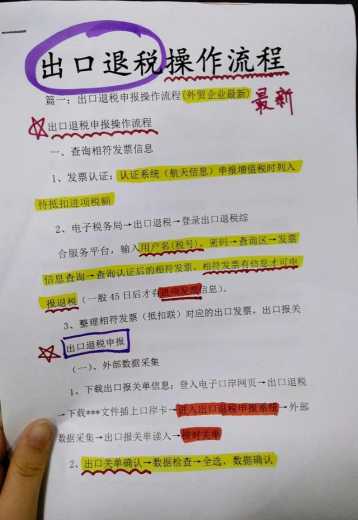 出口退税操作流程
篇一：出口退税申报操作流程(外贸企业最新)
最新
出口退税申报操作流程
一、查询相符发票信息
1、发票认证：认证系统（航天信息）申报增值税时列入
待抵扣进项税额
2、电子税务局→出口退税→登录出口退税综
合服务平台，输入用户名(税号)、密码→查询区→发票
信息查询→查询认证后的相符发票。相符发票有信息才可申
报退税（一般45日后才有 信息）。
3、整理相符发票（抵扣联）对应的出口发票、出口报关
出口退税申报
（一）、外部数据采集
1、下载出口报关单信息：登入电子口岸网页→出口退税
→下载***文件插上口岸卡→进入出口退税申报系统→外部
数据采集→出口报关单读入→ 关单
2、出口关单确认→数据检查→全选、数据确认